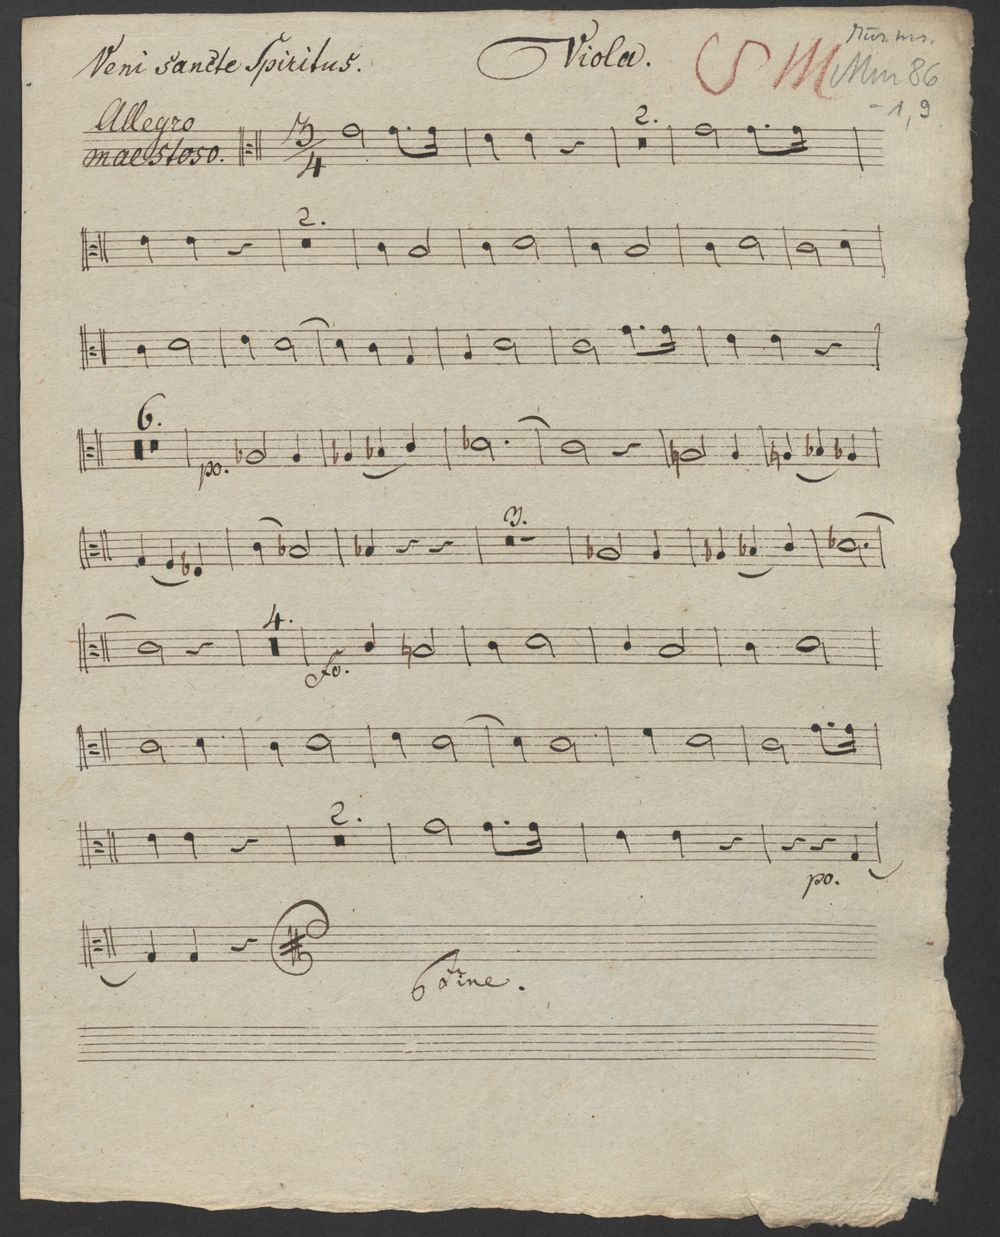 Veni sancte Spiritus. Viola. S M Mus. ms.
Mm 86
- 1, 9
Allegro
maestoso. 3/4 2.
2.
6.
po.
3.
4.
fo.
2.
po.
Fine.